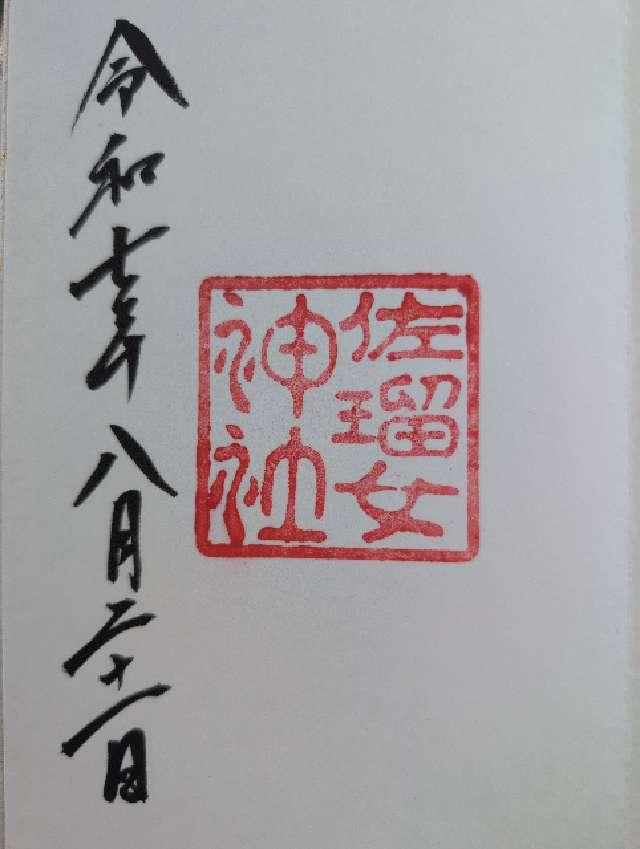 佐瑠女
神社
令和七年八月二十一日